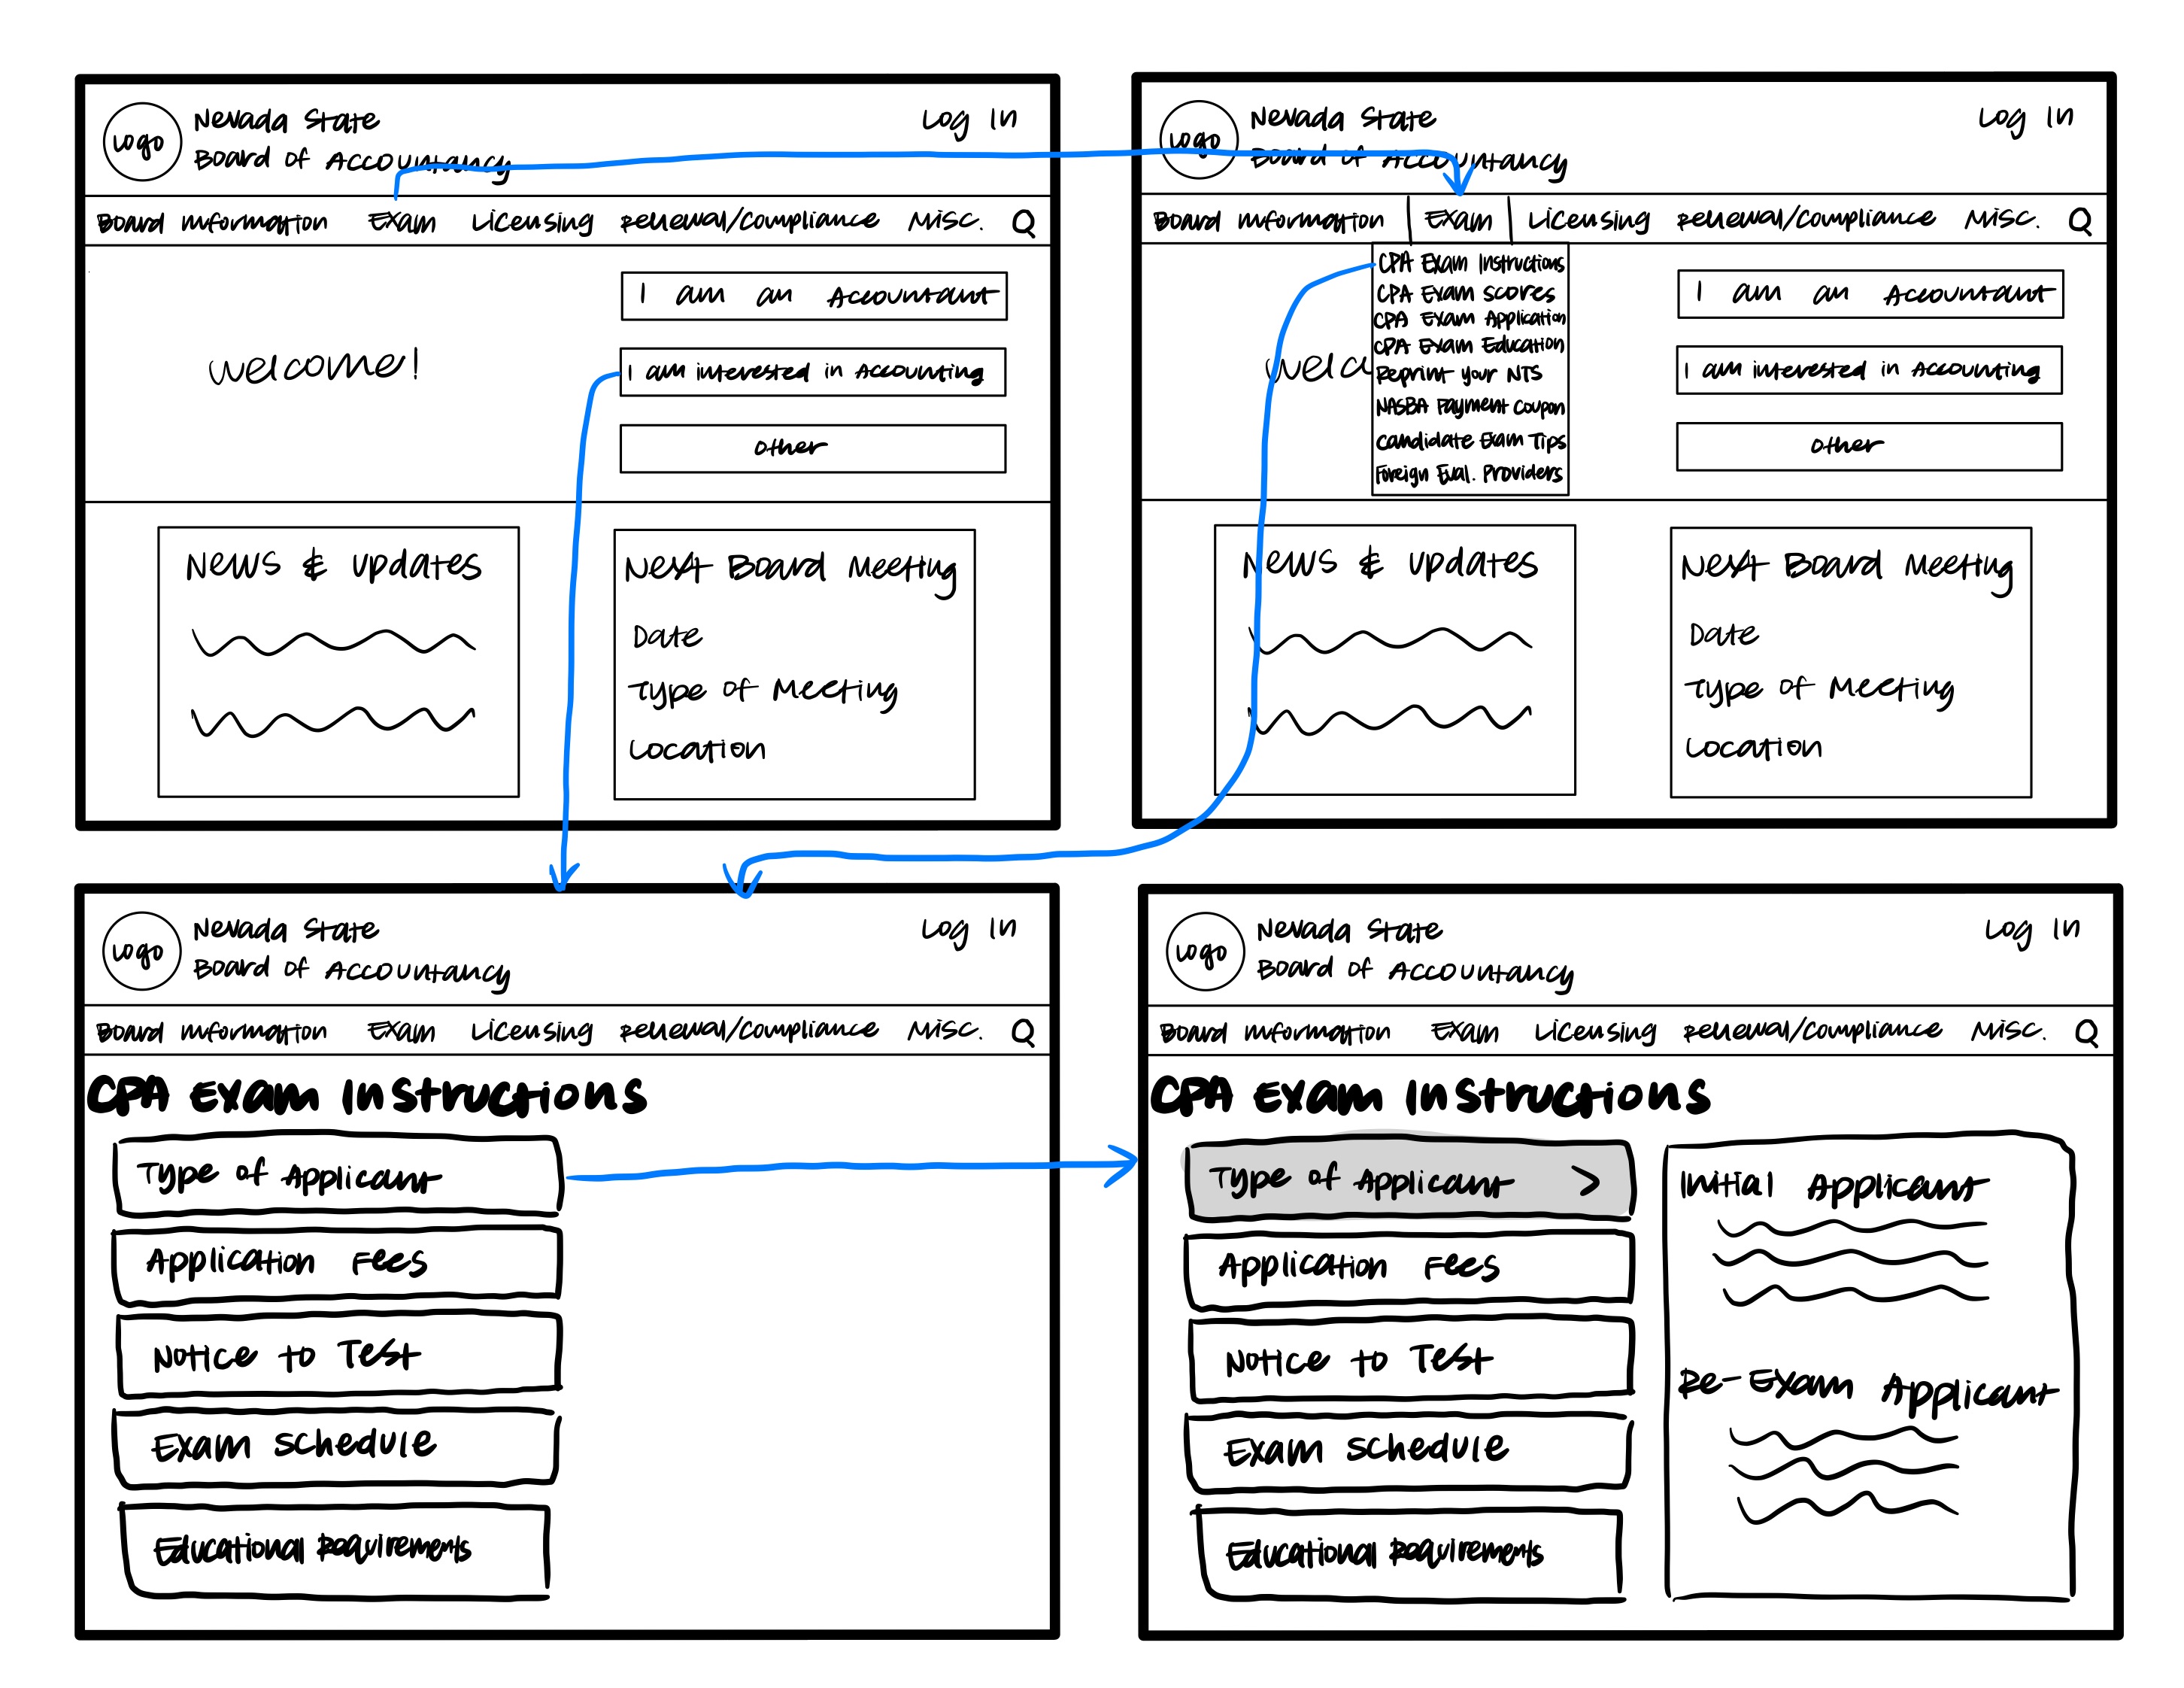 Logo
Nevada State
Board of Accountancy
Log In
Board Information Exam Licensing Renewal/Compliance Misc.
Welcome!
I am an Accountant
I am interested in Accounting
Other
News & Updates
Next Board Meeting
Date
Type of Meeting
Location
Logo
Nevada State
Board of Accountancy
Log In
Board Information Exam Licensing Renewal/Compliance Misc.
CPA Exam Instructions
CPA Exam Scores
CPA Exam Application
CPA Exam Education
Reprint Your NTS
NASBA Payment Coupon
Candidate Exam Tips
Foreign Eval. Providers
Welco
I am an Accountant
I am interested in Accounting
Other
News & Updates
Next Board Meeting
Date
Type of Meeting
Location
Logo
Nevada State
Board of Accountancy
Log In
Board Information Exam Licensing Renewal/Compliance Misc.
CPA Exam Instructions
Type of Applicant
Application Fees
Notice to Test
Exam Schedule
Educational Requirements
Logo
Nevada State
Board of Accountancy
Log In
Board Information Exam Licensing Renewal/Compliance Misc.
CPA Exam Instructions
Type of Applicant >
Application Fees
Notice to Test
Exam Schedule
Educational Requirements
Initial Applicant
Re-Exam Applicant